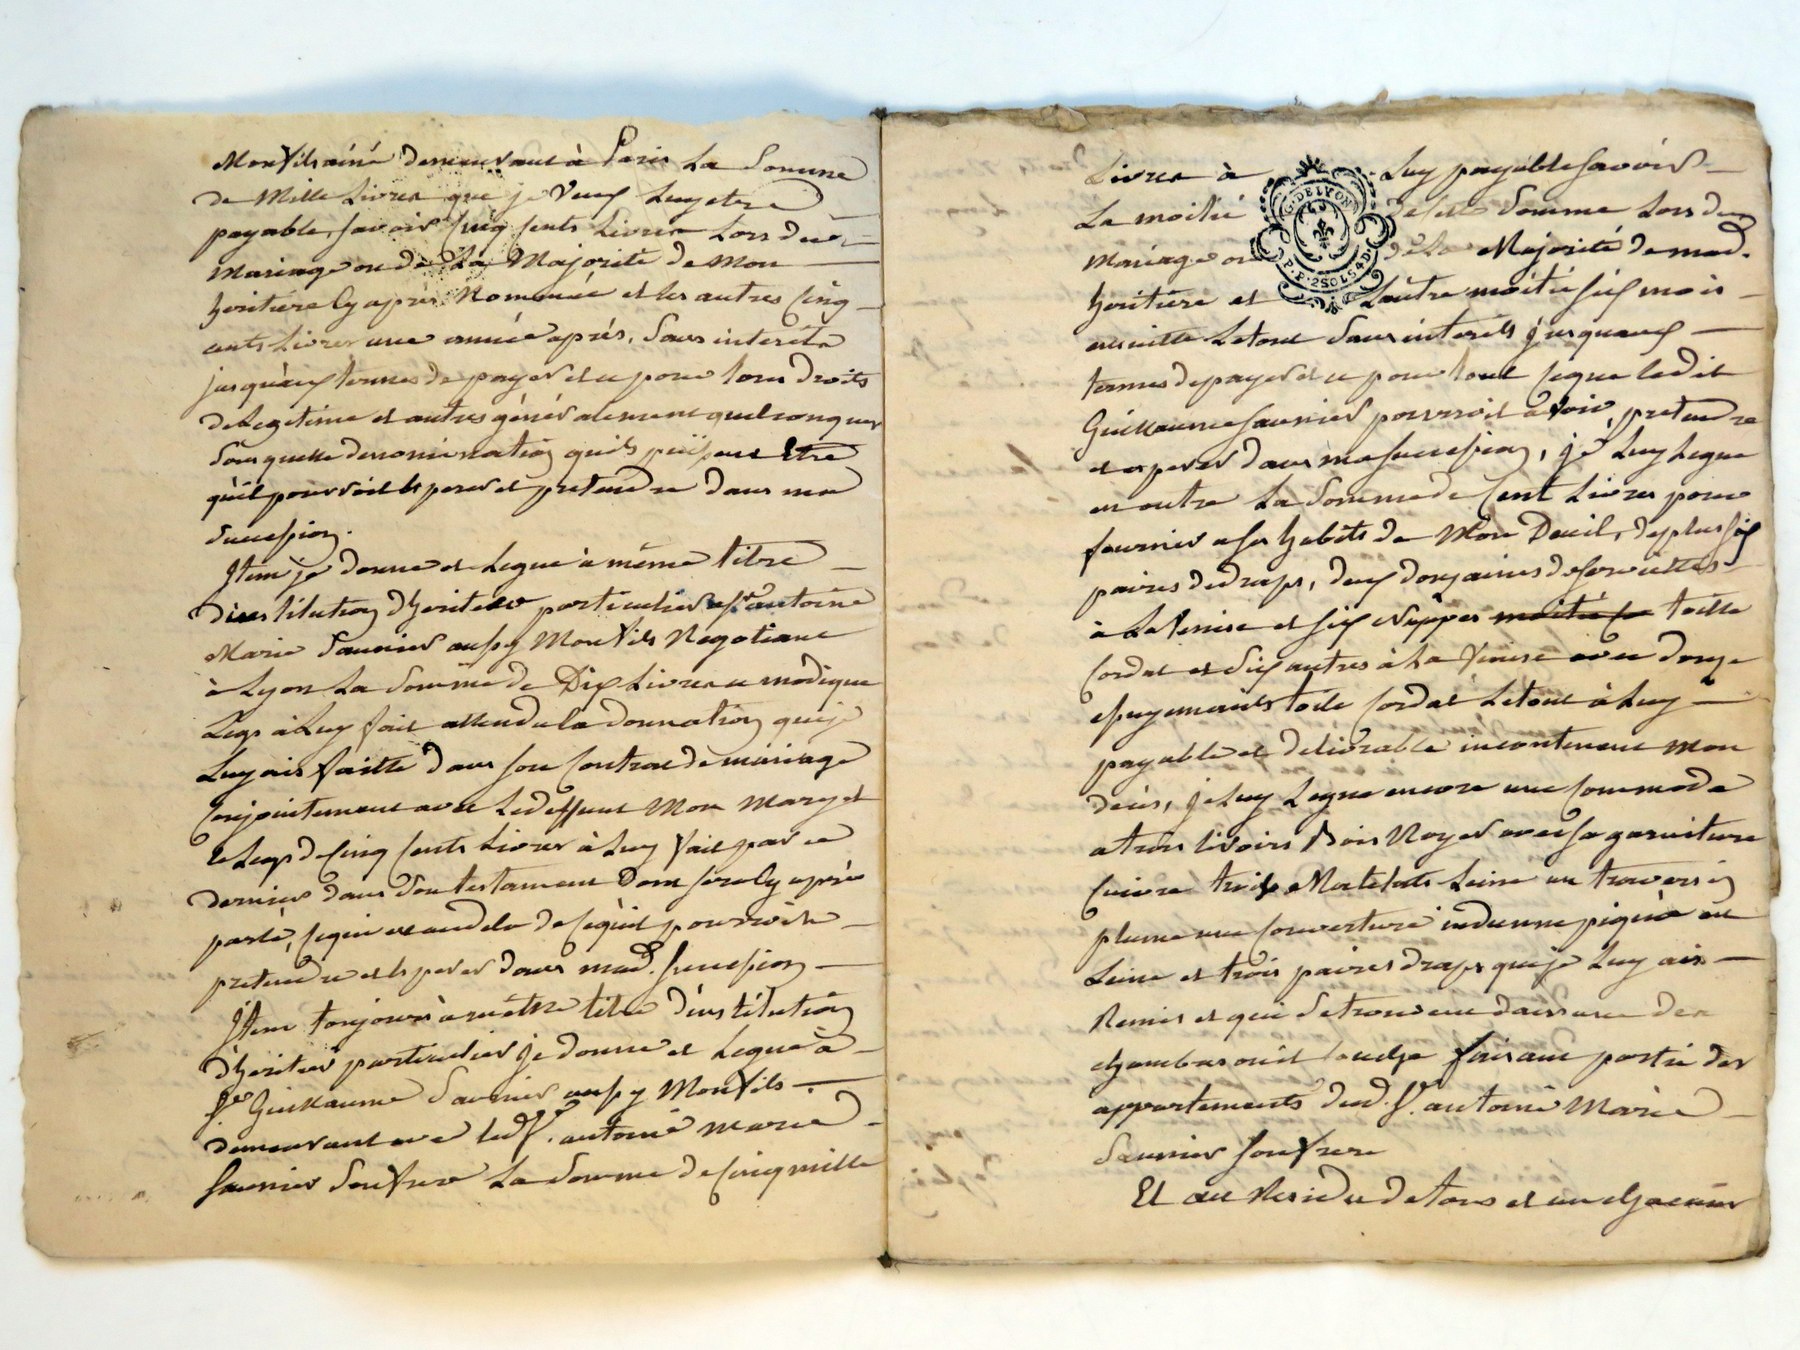 Mon fils ainé demeurant à Paris La Somme
de Mille Livres que je veux Luy etre
payable, savoir Cinq Cents Livres Lors du
mariage ou de La Majorité de mon
heritiere Cy après Nommée et les autres Cinq
cents Livres une année après, Sans interets
jusqu'aux termes de payer et ce pour tous droits
de Legitime et autres généralement quelconques
Sous quelle denomination qu'ils puissent Etre
qu'il pourroit esperer et pretendre dans ma
Succession.
Item je donne et Legue à même titre
d'institution d'heritier particulier à Sr. antoine
Marie Saunier aussy Mon fils Negotiant
à Lyon La Somme de Dix Livres ce modique
Legs à Luy fait attendu la donnation que je
Luy ais faitte dans son Contrat de mariage
Conjointement avec Le deffunt Mon Mary et
Le Legs de Cinq Cents Livres à Luy fait par ce
dernier dans Son testament Dont sera Cy après
parlé, Ce qui est au dela de Ce qu'il pourroit
pretendre et esperer dans mad. succession
Item toujours à mème titre d'institution
d'heritier particulier je donne et Legue à
Sr. Guillaume Saunier aussy Mon fils
demeurant avec led. Sr. antoine marie
Saunier Son frere La Somme de Cinq mille
Livres à Luy payable savoir
La moitié de cette Somme Lors du
mariage ou de La Majorité de mad.
heritiere et L'autre moitié six mois
ensuitte Le tout Sans interets jusqu'aux
termes de payer et ce pour tout Ce que ledit
Guillaume Saunier pourroit avoir, pretendre
et esperer dans ma succession, je Luy Legue
en outre La Somme de Cent Livres pour
fournir a ses habits de Mon Deuil, de plus six
paires de draps, deux douzaines de serviettes
à La Venise et six Nappes moitié toille
Cordat et Six autres à La Venise avec douze
essuyemains toile Cordat Le tout à Luy
payable et delivrable incontinent mon
décès, je Luy Legue encore une Commode
a trois tiroirs Bois Noyer avec sa garniture
Cuivre trois Matelats Leine un traversin
plume une Couverture indienne piquée en
Leine et trois paires draps que je Luy ais
Remis et qui Se trouvent dans une des
chambres où il Couche faisant partie des
appartements dud. Sr. antoine Marie
Saunier Son frere
Et au Residu de tous et un chacuns
G. DE LYON
P.P. 2 SOLS 4 D.